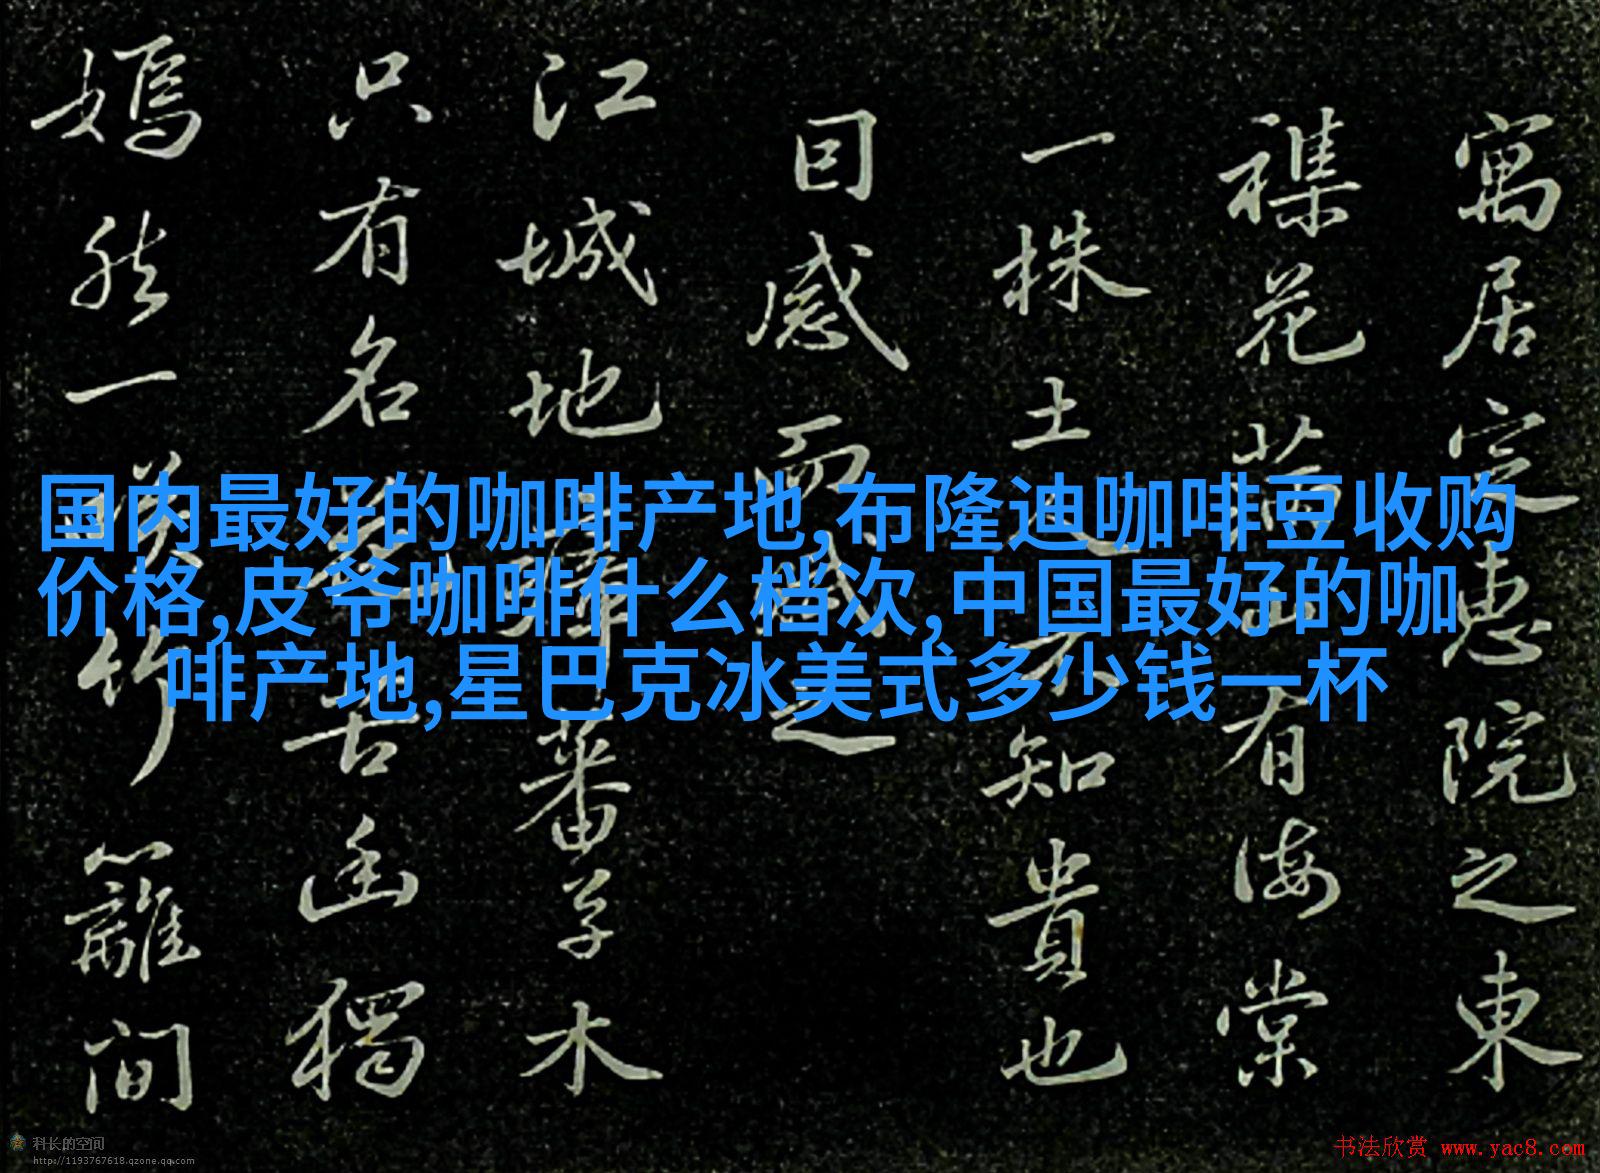 寓居定惠院之東
襍花山有海棠
一株土不知貴也
囙感而之
江城地瘴蕃草木
只有名花苦幽獨
嫣然一笑竹籬間
国内最好的咖啡产地,布隆迪咖啡豆收购
价格,皮爷咖啡什么档次,中国最好的咖
啡产地,星巴克冰美式多少钱一杯
科长的空间
http://1193767618.qzone.qq.com
书法欣赏 www.yac8.com